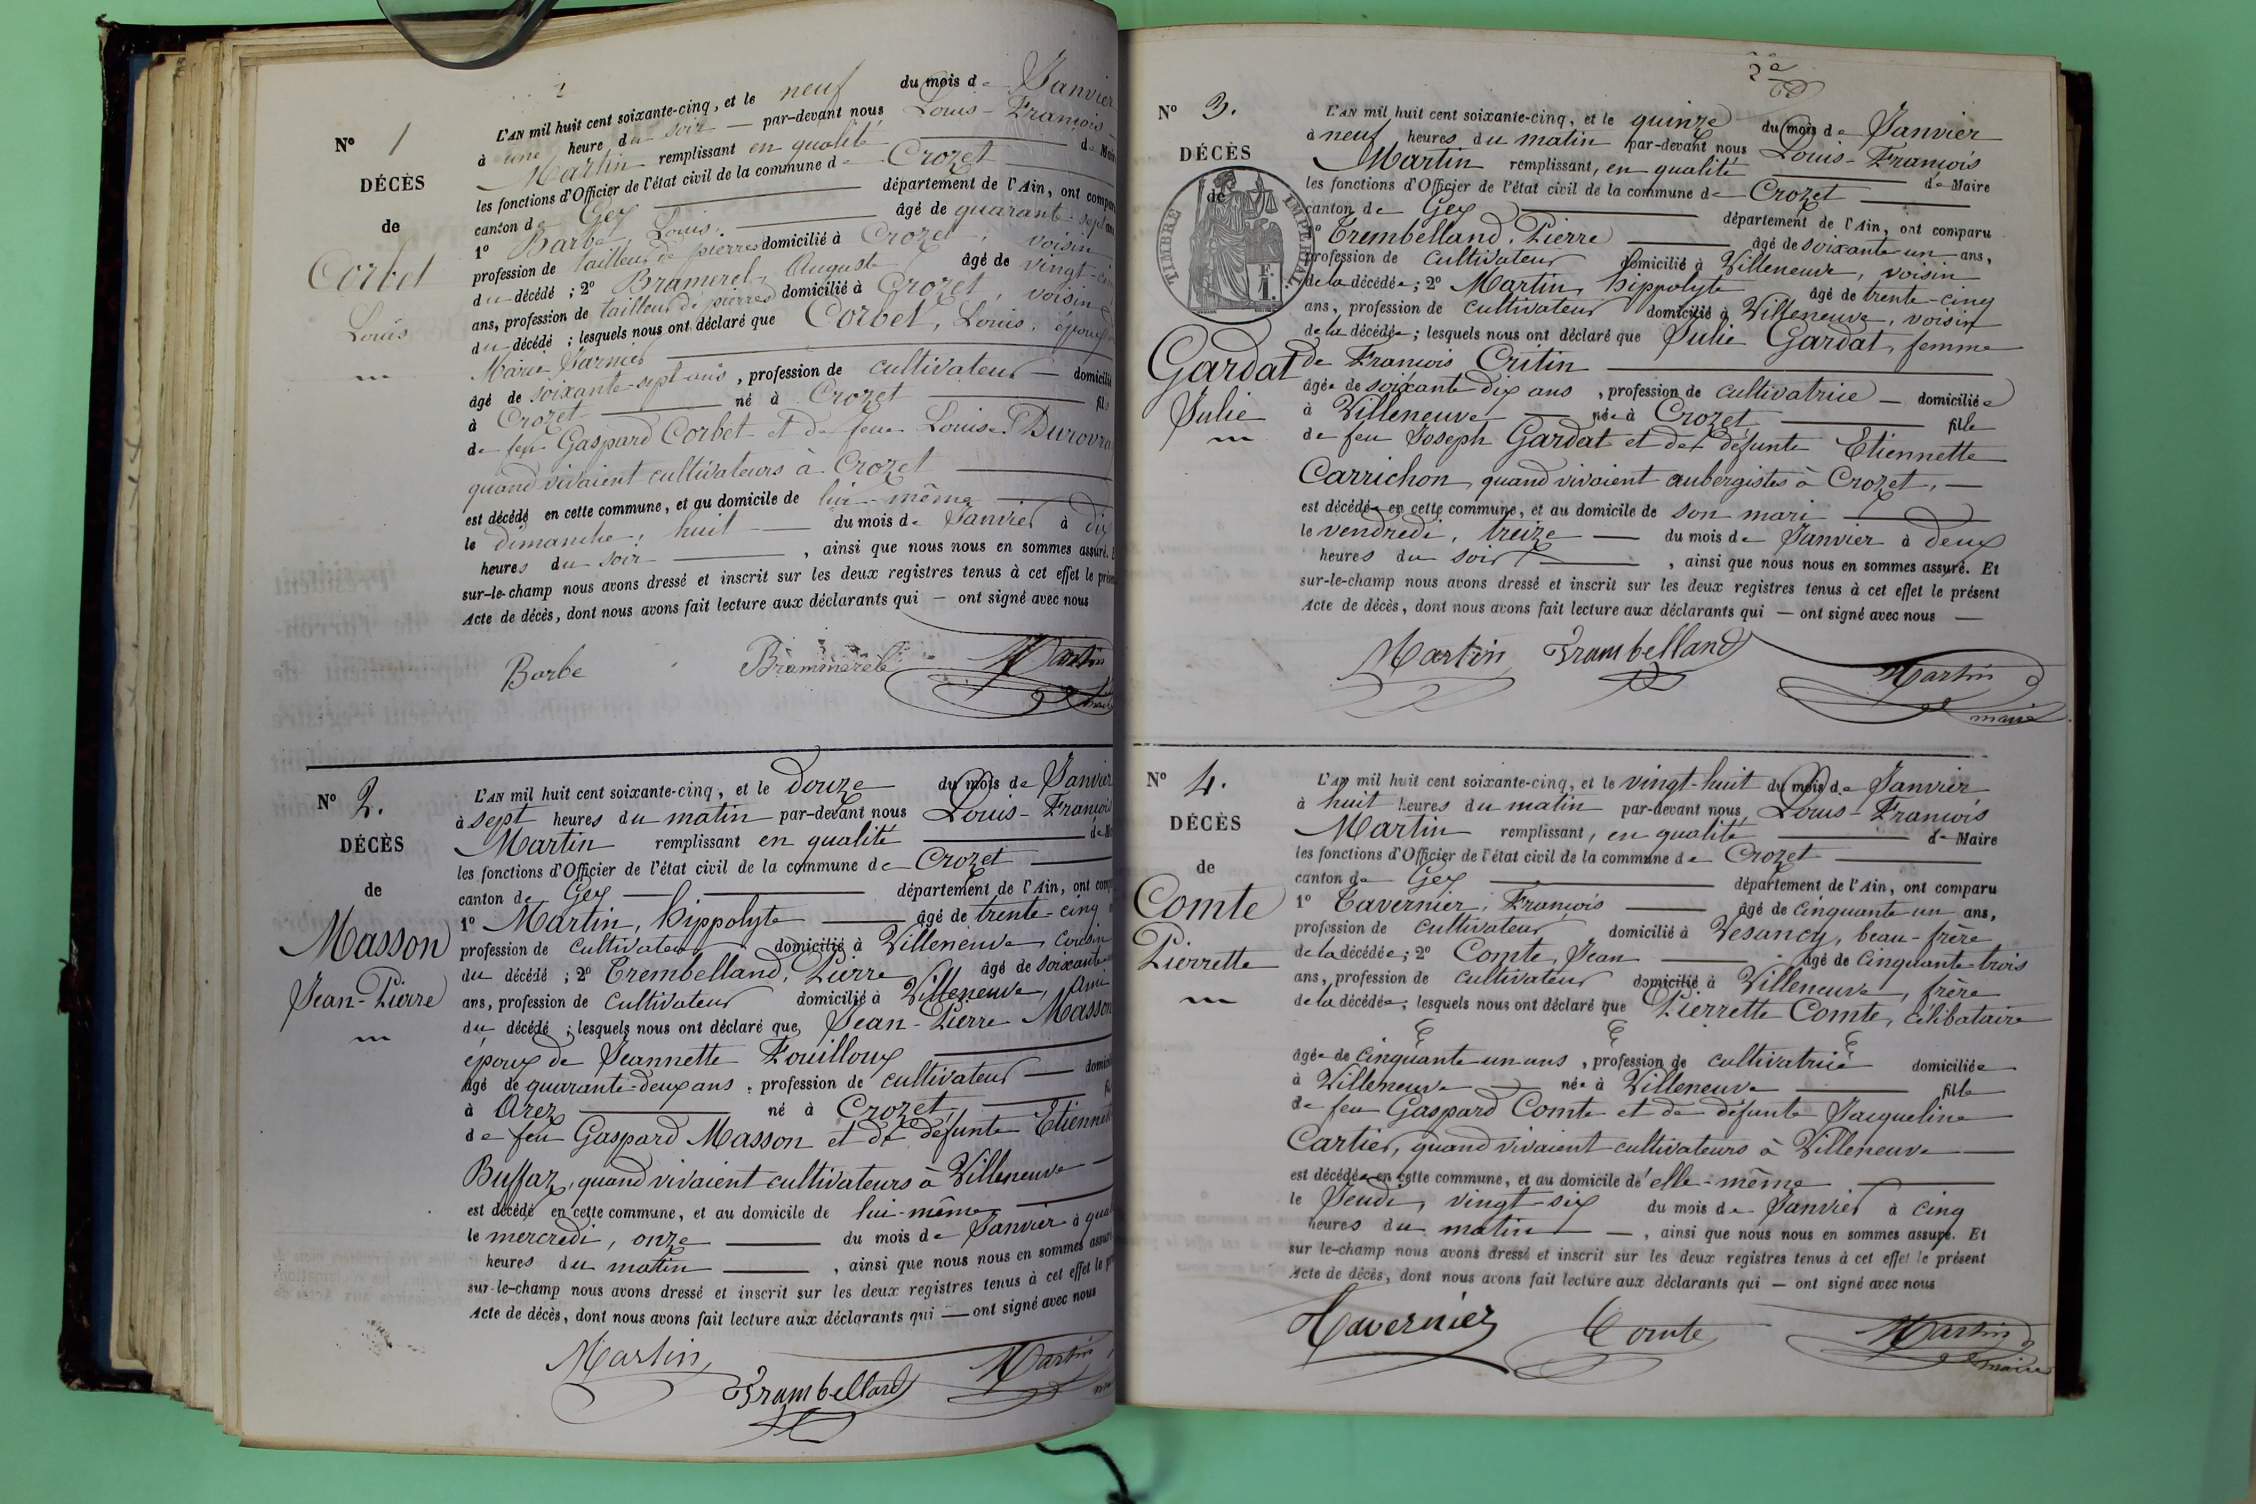 1
N° 1
DÉCÈS
de
Corbet
Louis
L'AN mil huit cent soixante-cinq, et le neuf du mois de Janvier
à une heure du soir — par-devant nous Louis-François
Martin remplissant en qualité de Maire
les fonctions d'Officier de l'état civil de la commune de Crozet
canton de Gex département de l'Ain, ont compa
1° Barbe, Louis. âgé de quarante-sept ans
profession de tailleur de pierres domicilié à Crozet, voisin
du décédé ; 2° Bramerel, Auguste âgé de vingt-cinq
ans, profession de tailleur de pierres domicilié à Crozet, voisin
du décédé ; lesquels nous ont déclaré que Corbet, Louis, époux
Marie Garnier
âgé de soixante-sept ans, profession de cultivateur — domicilié
à Crozet né à Crozet fils
de feu Gaspard Corbet et de feue Louise
quand vivaient cultivateurs à Crozet
est décédé en cette commune, et au domicile de lui-même
le dimanche, huit du mois de Janvier à dix
heures du soir, ainsi que nous nous en sommes assuré. E
sur-le-champ nous avons dressé et inscrit sur les deux registres tenus à cet effet le prése
Acte de décès, dont nous avons fait lecture aux déclarants qui — ont signé avec nous
Barbe Brammerel Martin
maire
N° 2.
DÉCÈS
de
Masson
Jean-Pierre
L'AN mil huit cent soixante-cinq, et le douze du mois de Janvier
à sept heures du matin par-devant nous Louis-François
Martin remplissant en qualité de Ma
les fonctions d'Officier de l'état civil de la commune de Crozet
canton de Gex département de l'Ain, ont comp
1° Martin, hippolyte âgé de trente-cinq
profession de cultivateur domicilié à Villeneuve, cousin
du décédé ; 2° Trembelland, Pierre âgé de soixante
ans, profession de cultivateur domicilié à Villeneuve, ami
du décédé ; lesquels nous ont déclaré que Jean-Pierre Masson
époux de Jeannette Fouilloux
âgé de quarante-deux ans, profession de cultivateur — domici
à Arez né à Crozet fi
de feu Gaspard Masson et de défunte Etiennette
Buffaz, quand vivaient cultivateurs à Villeneuve —
est décédé en cette commune, et au domicile de lui-même
le mercredi, onze du mois de Janvier à quat
heures du matin, ainsi que nous nous en sommes assuré
sur-le-champ nous avons dressé et inscrit sur les deux registres tenus à cet effet le pr
Acte de décès, dont nous avons fait lecture aux déclarants qui — ont signé avec nous
Martin Trambelland Martin
2e
N° 3.
DÉCÈS
de
TIMBRE IMPÉRIAL
1 F.
Gardat
Julie
L'AN mil huit cent soixante-cinq, et le quinze du mois de Janvier
à neuf heures du matin par-devant nous Louis-François
Martin remplissant, en qualité de Maire
les fonctions d'Officier de l'état civil de la commune de Crozet
canton de Gex département de l'Ain, ont comparu
1° Trembelland, Pierre âgé de soixante-un ans,
profession de cultivateur domicilié à Villeneuve, voisin
de la décédée ; 2° Martin, hippolyte âgé de trente-cinq
ans, profession de cultivateur domicilié à Villeneuve, voisin
de la décédée ; lesquels nous ont déclaré que Julie Gardat, femme
de François Critin
âgée de soixante dix ans, profession de cultivatrice — domiciliée
à Villeneuve née à Crozet fille
de feu Joseph Gardat et de défunte Etiennette
Carrichon quand vivaient aubergistes à Crozet, —
est décédée en cette commune, et au domicile de son mari
le vendredi, treize — du mois de Janvier à deux
heures du soir, ainsi que nous nous en sommes assuré. Et
sur-le-champ nous avons dressé et inscrit sur les deux registres tenus à cet effet le présent
Acte de décès, dont nous avons fait lecture aux déclarants qui — ont signé avec nous —
Martin Trambelland Martin
maire
N° 4.
DÉCÈS
de
Comte
Pierrette
L'AN mil huit cent soixante-cinq, et le vingt-huit du mois de Janvier
à huit heures du matin par-devant nous Louis-François
Martin remplissant, en qualité de Maire
les fonctions d'Officier de l'état civil de la commune de Crozet
canton de Gex département de l'Ain, ont comparu
1° Tavernier, François âgé de cinquante-un ans,
profession de cultivateur domicilié à Vesancy, beau-frère
de la décédée ; 2° Comte, Jean âgé de cinquante trois
ans, profession de cultivateur domicilié à Villeneuve, frère
de la décédée, lesquels nous ont déclaré que Pierrette Comte, célibataire
âgée de cinquante-un ans, profession de cultivatrice domiciliée
à Villeneuve née à Villeneuve fille
de feu Gaspard Comte et de défunte Jacqueline
Cartier, quand vivaient cultivateurs à Villeneuve —
est décédée en cette commune, et au domicile de elle-même
le Jeudi, vingt-six du mois de Janvier à cinq
heures du matin —, ainsi que nous nous en sommes assuré. Et
sur le-champ nous avons dressé et inscrit sur les deux registres tenus à cet effet le présent
Acte de décès, dont nous avons fait lecture aux déclarants qui — ont signé avec nous
Tavernier Comte Martin
maire